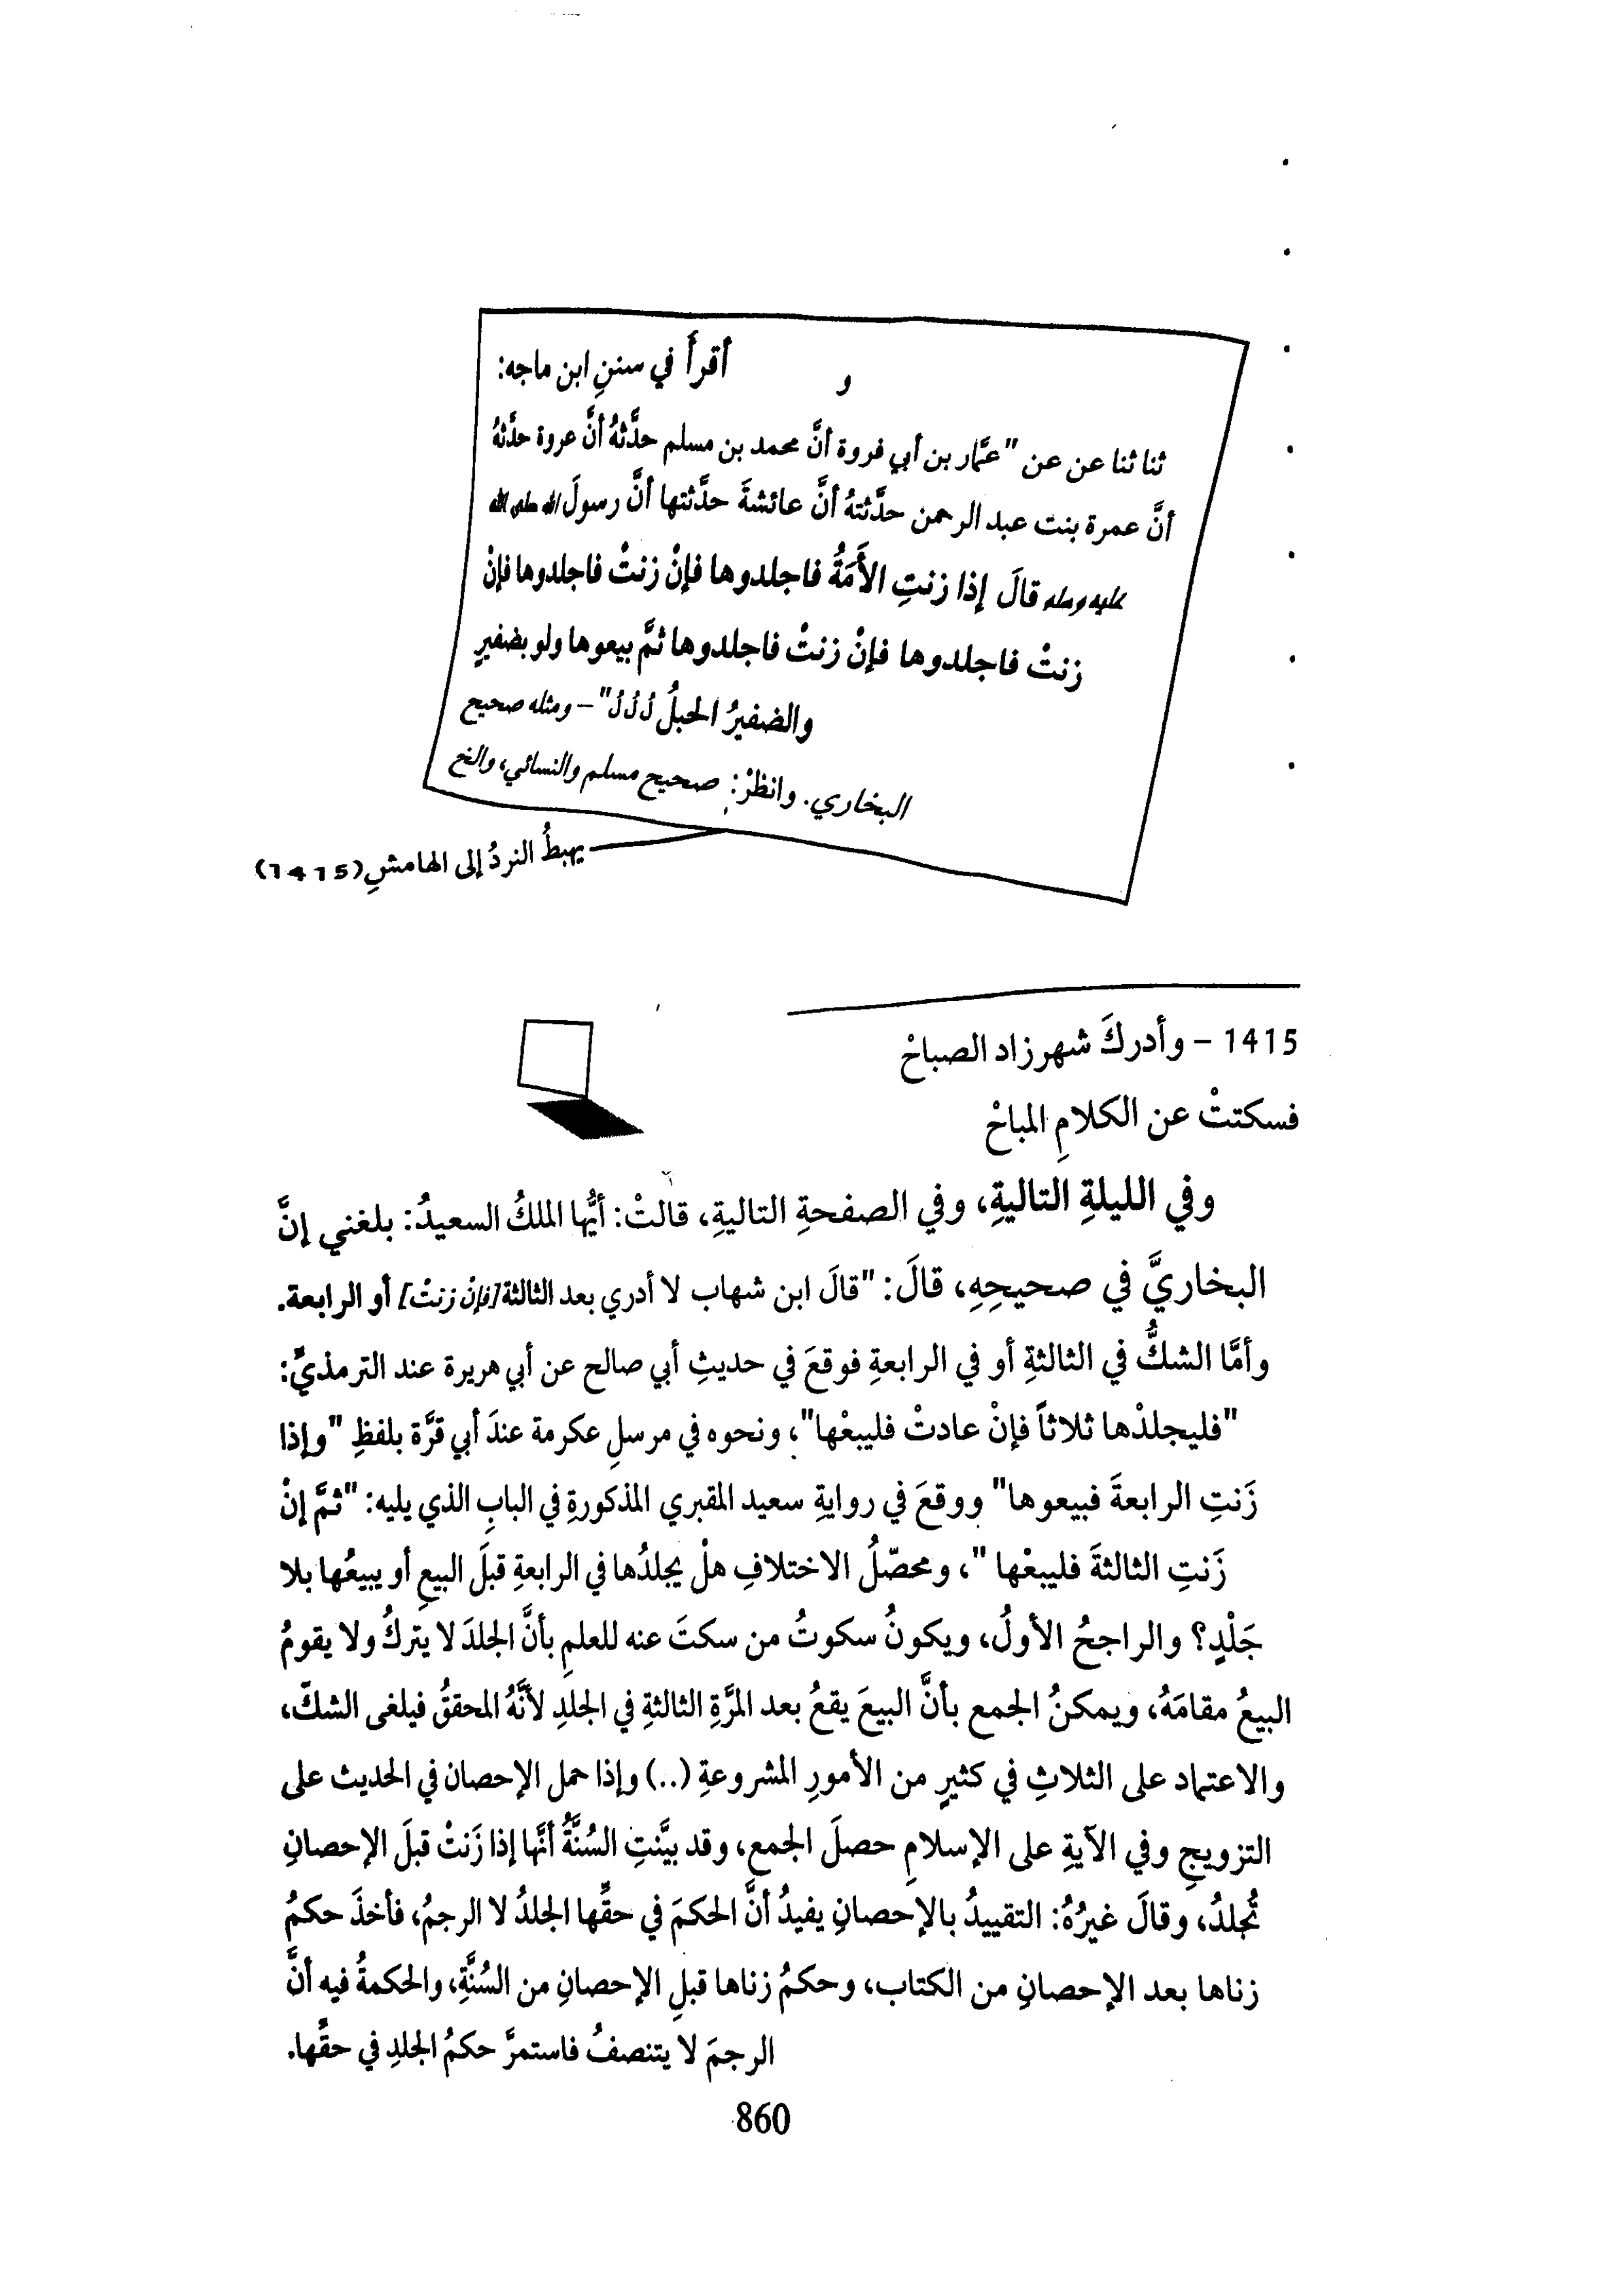 و أقرأ في سننِ ابن ماجه:
ثنا ثنا عن عن "عمَّار بن أبي فروة أنَّ محمد بن مسلم حدَّثهُ أنَّ عروة حدَّثهُ
أنَّ عمرة بنت عبد الرحمن حدَّثتهُ أنَّ عائشةَ حدَّثتها أنَّ رسولَ الله صلى الله
عليه وسلم قالَ إذا زنتِ الأَمَةُ فاجلدوها فإنْ زنتْ فاجلدوها فإنْ
زنتْ فاجلدوها فإنْ زنتْ فاجلدوها ثمَّ بيعوها ولو بضفيرٍ
والضفيرُ الحبلُ لُ لُ لُ" – ومثله صحيح
البخاري. وانظرْ: صحيح مسلم والنسائي، والخ
يهبطُ النردُ إلى الهامشِ (1415)
1415 – وأدركَ شهرزاد الصباحْ
فسكتتْ عن الكلامِ المباحْ
وفي الليلةِ التاليةِ، وفي الصفحةِ التاليةِ، قالتْ: أيُّها الملكُ السعيدُ: بلغني إنَّ
البخاريَّ في صحيحِهِ، قالَ: "قالَ ابن شهاب لا أدري بعد الثالثة [فإنْ زنتْ] أو الرابعة.
وأمَّا الشكُّ في الثالثةِ أو في الرابعةِ فوقعَ في حديثِ أبي صالح عن أبي هريرة عند الترمذيِّ:
"فليجلدْها ثلاثاً فإنْ عادتْ فليبعْها"، ونحوه في مرسلِ عكرمة عندَ أبي قرَّة بلفظِ "وإذا
زَنتِ الرابعةَ فبيعوها" ووقعَ في روايةِ سعيد المقبري المذكورةِ في البابِ الذي يليه: "ثمَّ إنْ
زَنتِ الثالثةَ فليبعْها "، ومحصّلُ الاختلافِ هلْ يجلدُها في الرابعةِ قبلَ البيعِ أو يبيعُها بلا
جَلْدٍ؟ والراجحُ الأولُ، ويكونُ سكوتُ من سكتَ عنه للعلمِ بأنَّ الجلدَ لا يتركُ ولا يقومُ
البيعُ مقامَهُ، ويمكنُ الجمع بأنَّ البيعَ يقعُ بعد المرَّةِ الثالثةِ في الجلدِ لأنَّهُ المحققُ فيلغى الشكّ،
والاعتماد على الثلاثِ في كثيرٍ من الأمورِ المشروعةِ (..) وإذا حمل الإحصان في الحديث على
التزويجِ وفي الآيةِ على الإسلامِ حصلَ الجمع، وقد بيَّنتِ السُنَّةُ أنَّها إذا زَنتْ قبلَ الإحصانِ
تُجلدُ، وقالَ غيرُهُ: التقييدُ بالإحصانِ يفيدُ أنَّ الحكمَ في حقِّها الجلدُ لا الرجمُ، فأخذَ حكمُ
زناها بعد الإحصانِ من الكتاب، وحكمُ زناها قبلِ الإحصانِ من السُنَّةِ، والحكمةُ فيه أنَّ
الرجمَ لا يتنصفُ فاستمرَّ حكمُ الجلدِ في حقِّها.
860